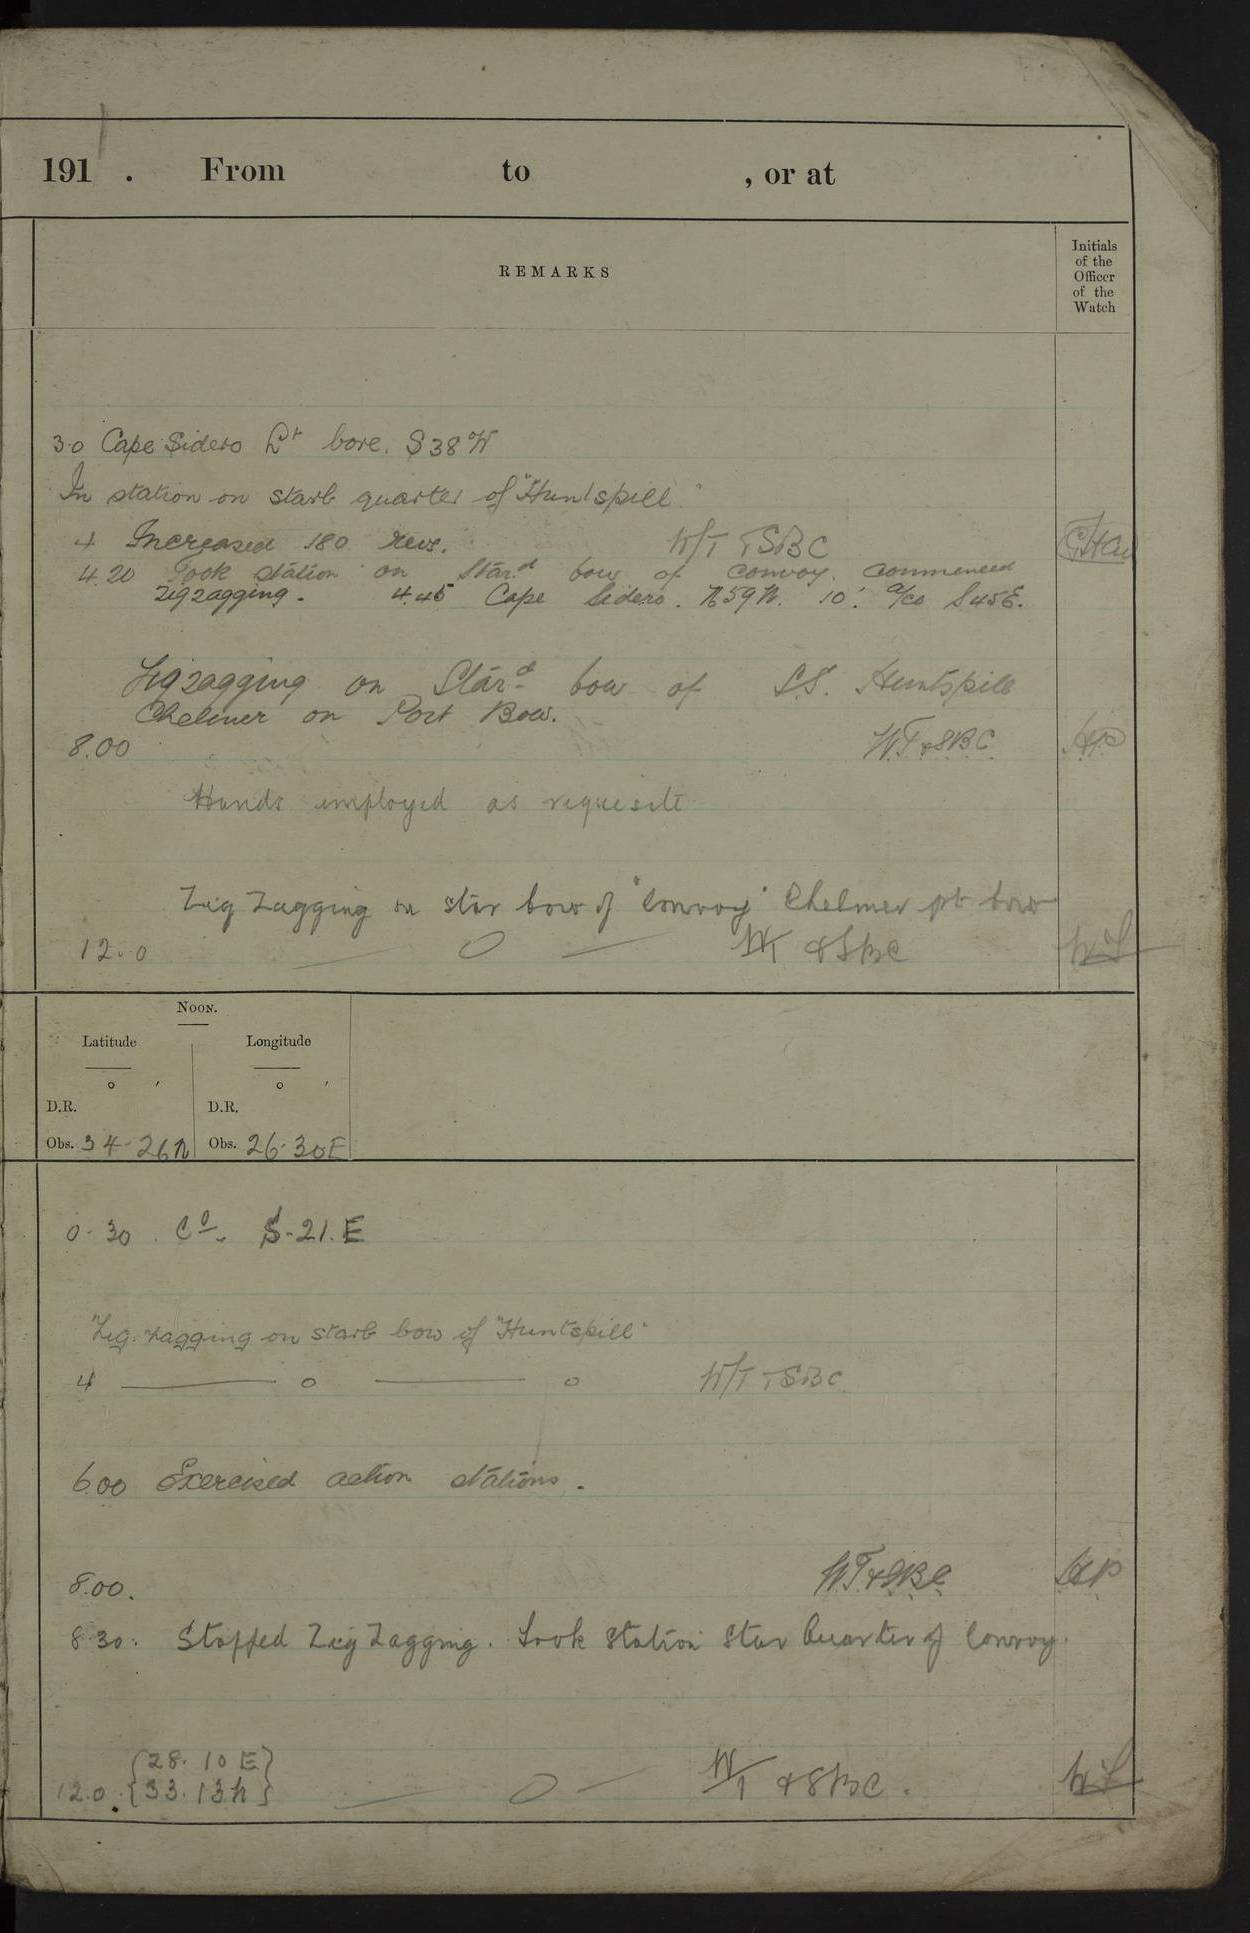 191 . From to , or at
REMARKS
Initials
of the
Officer
of the
Watch
3.0 Cape Sidero Lt bore. S 38 W
In station on starb quarter of "Huntspill"
4 Increased 180 revs. W/T + SBC
4.20 Took station on Stard bow of convoy. Commenced
zigzagging. 4.45 Cape Sidero. N59W. 10'. a/co S45E.
Zigzagging on Stard bow of S.S. Huntspill
Chelmer on Port Bow.
8.00 W.T & S.B.C. H.P
Hands employed as requisite
Zig Zagging on star bow of "Convoy" Chelmer pt bow
12.0 — O — W/T & SBC
Noon.
Latitude Longitude
o ' o '
D.R. D.R.
Obs. 34-26N Obs. 26-30E
0-30 . Co. S-21.E
Zig-zagging on starb bow of "Huntspill"
4 — o — o W/T + SBC
6.00 Exercised action stations.
8.00. W.T & S.B.C. H.P
8.30. Stopped Zig Zagging. Took station Star Quarter of Convoy.
{28. 10 E}
12.0 {33. 13 N} — O — W/T & SBC.